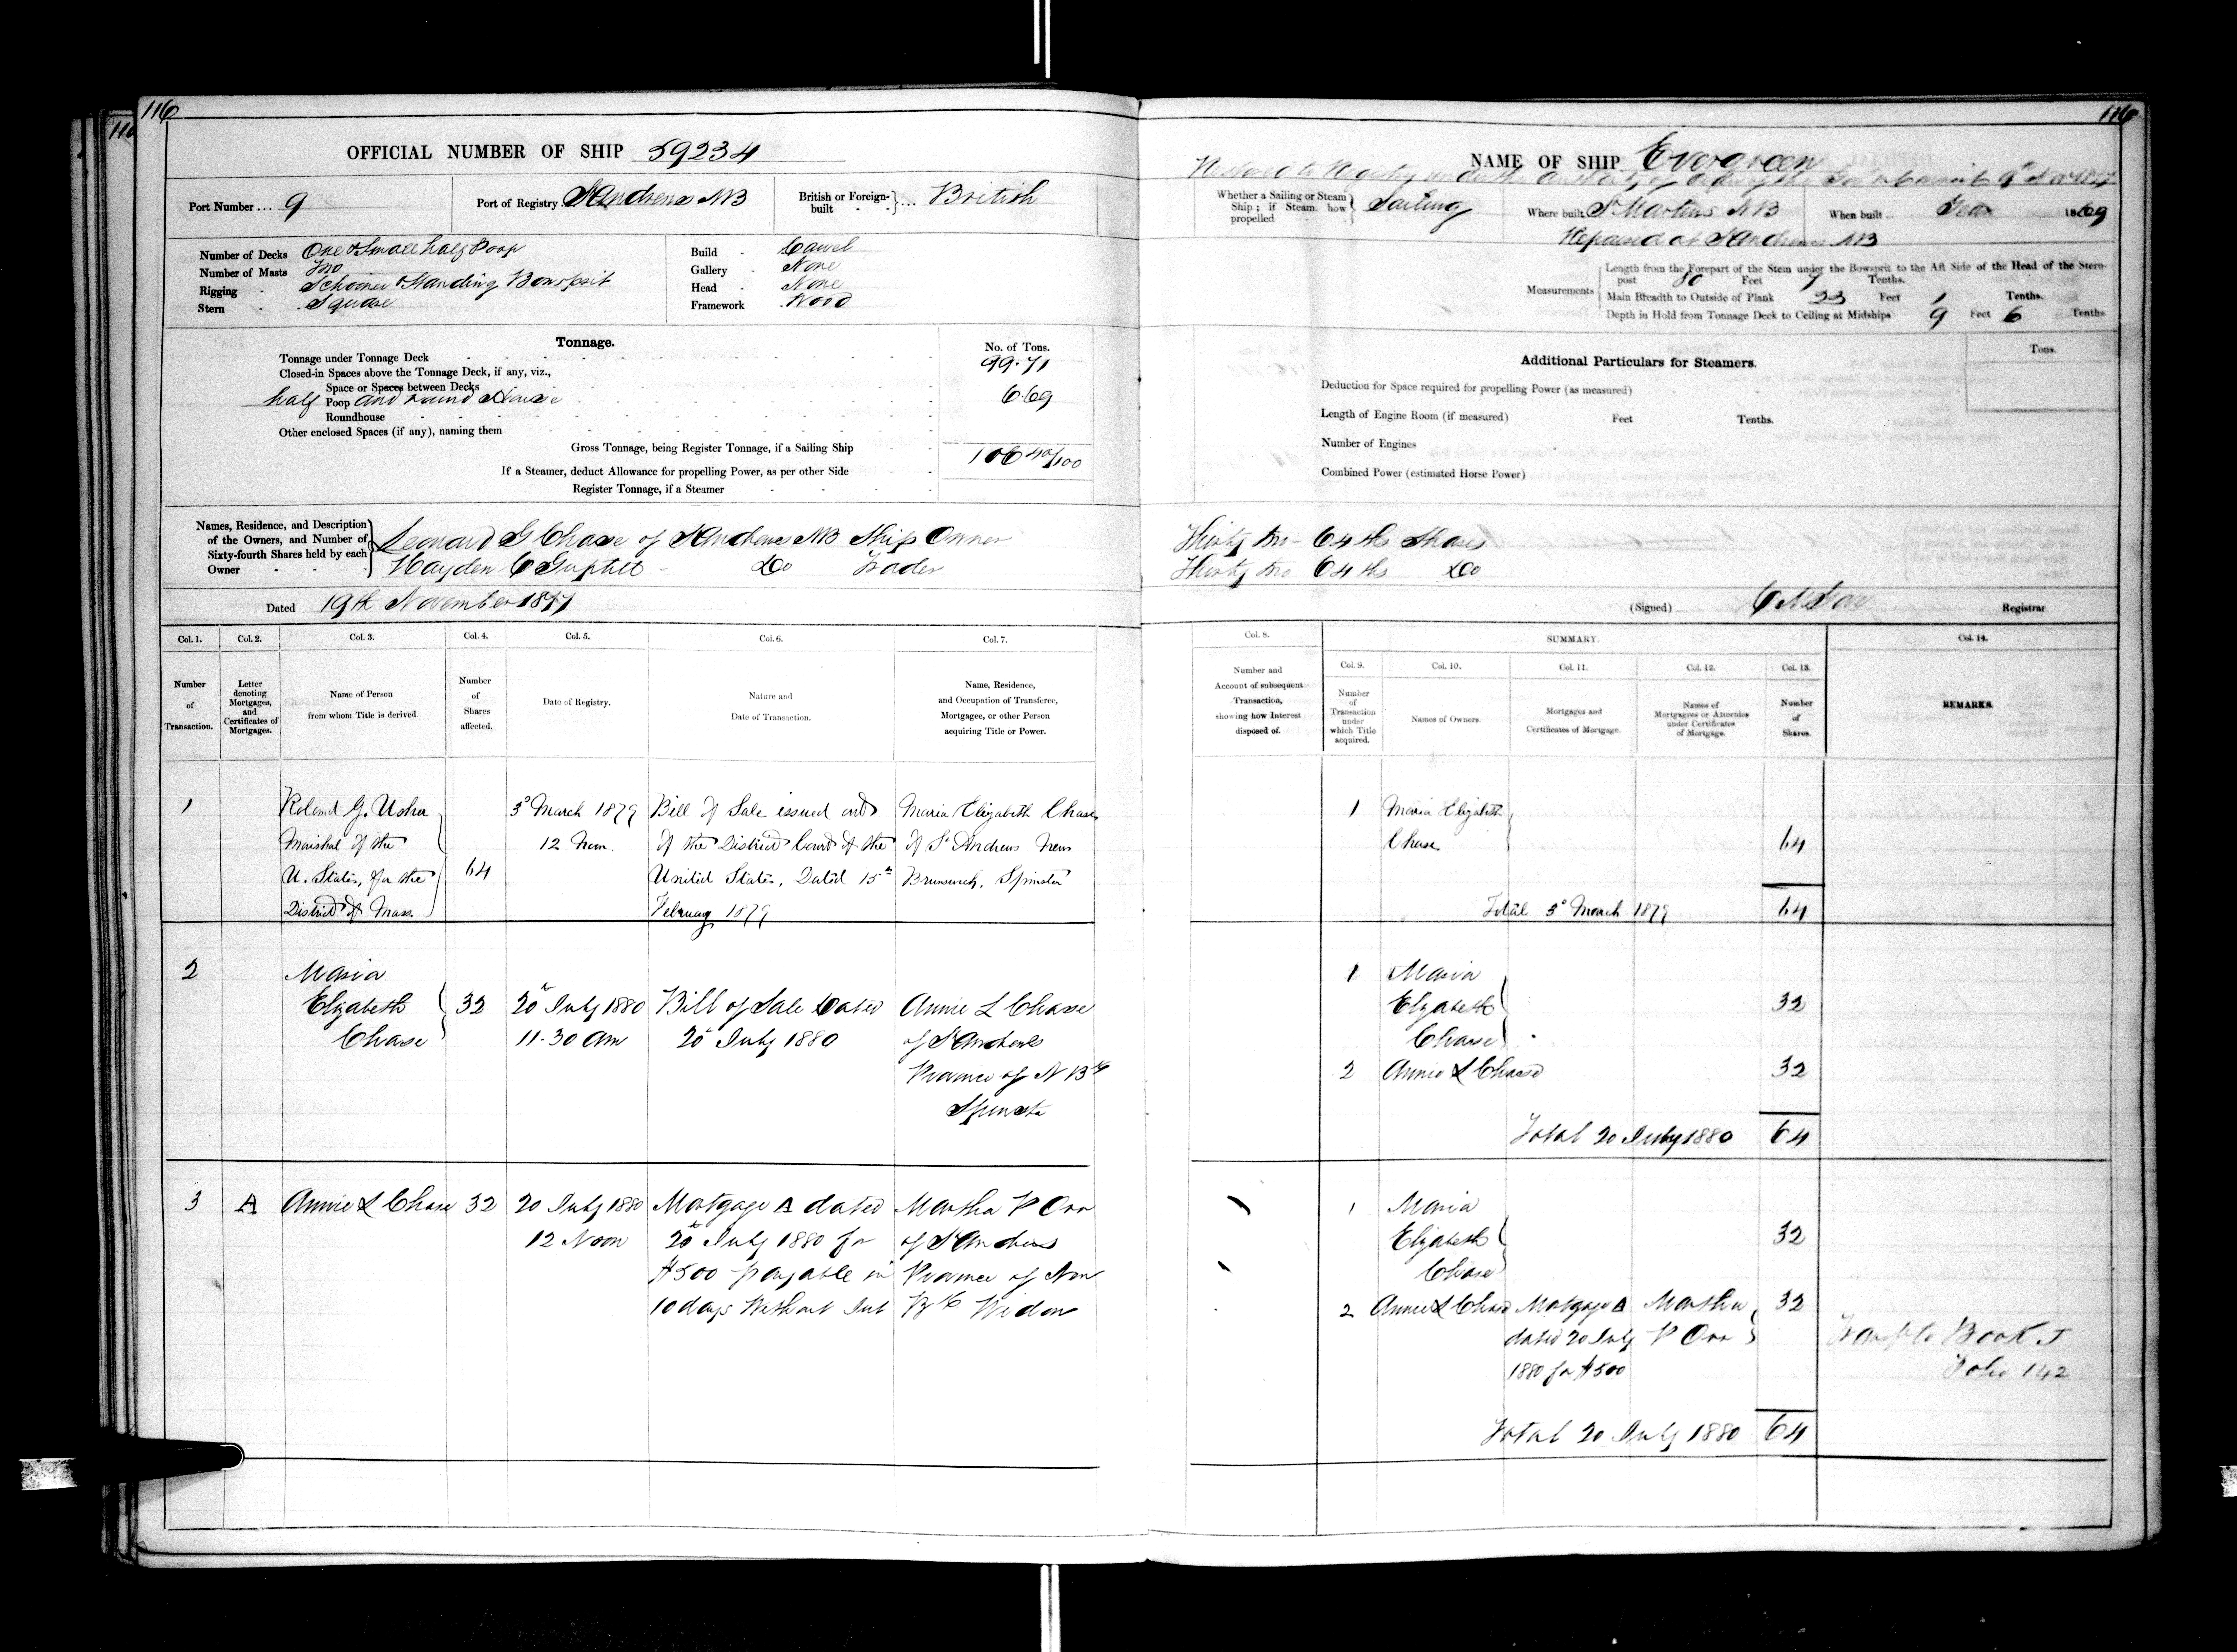 116
116
OFFICIAL NUMBER OF SHIP 59234
Port Number ... 9
Port of Registry St Andrews NB
British or Foreign-built } ... British
Number of Decks One & Small half Poop
Number of Masts Two
Rigging Schooner Standing Bowsprit
Stern Square
Build Carvel
Gallery None
Head None
Framework Wood
Tonnage.
No. of Tons.
Tonnage under Tonnage Deck 99.71
Closed-in Spaces above the Tonnage Deck, if any, viz.,
Space or Spaces between Decks
half Poop and round House 6.69
Roundhouse
Other enclosed Spaces (if any), naming them
Gross Tonnage, being Register Tonnage, if a Sailing Ship 106 40/100
If a Steamer, deduct Allowance for propelling Power, as per other Side
Register Tonnage, if a Steamer
Names, Residence, and Description of the Owners, and Number of Sixty-fourth Shares held by each Owner
Leonard G Chase of St Andrews NB Ship Owner
Hayden C Guptill Do Trader
Dated 19th November 1877
Col. 1. Col. 2. Col. 3. Col. 4. Col. 5. Col. 6. Col. 7.
Number of Transaction.
Letter denoting Mortgages, and Certificates of Mortgages.
Name of Person from whom Title is derived
Number of Shares affected.
Date of Registry.
Nature and Date of Transaction.
Name, Residence, and Occupation of Transferee, Mortgagee, or other Person acquiring Title or Power.
1 Roland G. Usher 3d March 1879 Bill of Sale issued out Maria Elizabeth Chase
Marshal of the 12 Noon. of the District Court of the of St Andrews New
U. States, for the 64 United States, Dated 15th Brunswick, Spinster
District of Mass. February 1879
2 Maria
Elizabeth 32 20th July 1880 Bill of Sale Dated Annie L Chase
Chase 11.30 am 20th July 1880 of St Andrews
Province of N Bk
Spinster
3 A Annie L Chase 32 20 July 1880 Mortgage A dated Martha P Orr
12 Noon 20th July 1880 for of St Andrews
$500 payable in Province of New
10 days Without Int Bk Widow
116
NAME OF SHIP Evergreen
Restored to Registry under the Authority of order of the
Whether a Sailing or Steam Ship; if Steam, how propelled } Sailing
Where built St Martins NB
When built Year 1869
Repaired at St Andrews NB
Measurements
Length from the Forepart of the Stem under the Bowsprit to the Aft Side of the Head of the Stern-
post 80 Feet 7 Tenths.
Main Breadth to Outside of Plank 23 Feet 1 Tenths.
Depth in Hold from Tonnage Deck to Ceiling at Midships 9 Feet 6 Tenths.
Additional Particulars for Steamers.
Tons.
Deduction for Space required for propelling Power (as measured)
Length of Engine Room (if measured) Feet Tenths.
Number of Engines
Combined Power (estimated Horse Power)
Thirty two 64ths Shares
Thirty two 64ths Do
(Signed) Registrar
Col. 8. SUMMARY. Col. 14.
Col. 9. Col. 10. Col. 11. Col. 12. Col. 13.
Number and Account of subsequent Transaction, showing how Interest disposed of.
Number of Transaction under which Title acquired.
Names of Owners.
Mortgages and Certificates of Mortgage.
Names of Mortgagees or Attornies under Certificates of Mortgage.
Number of Shares.
REMARKS.
1 Maria Elizabeth
Chase 64
Total 3d March 1879 64
1 Maria
Elizabeth 32
Chase
2 Annie L Chase 32
Total 20 July 1880 64
1 Maria
Elizabeth 32
Chase
2 Annie L Chase Mortgage A Martha 32
dated 20 July P Orr
1880 for $500
Book J
Folio 142
Total 20 July 1880 64